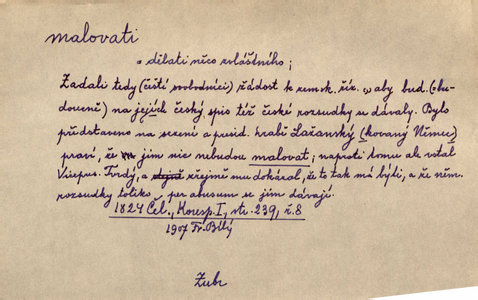 malovati
= dělati něco zvláštního;
Žádali tedy (čeští svobodníci) řádost k zemsk. říz. aby bud. (= bu-
doucně) na jejich český spis též české rozsudky se dávaly. Bylo
představeno na sezení a presid. hrabě Lažanský (kovaný Němec)
praví, že jim nic nebudou malovat; naproti tomu ale vstal
Vicepres. Tvrdý, a zřejmě mu dokázal, že to tak má býti, a že něm.
rozsudky toliko per abusum se jim dávají.
1824 Čel., Koresp. I, str. 239, č. 8
1907 Fr. Bílý
Zubr